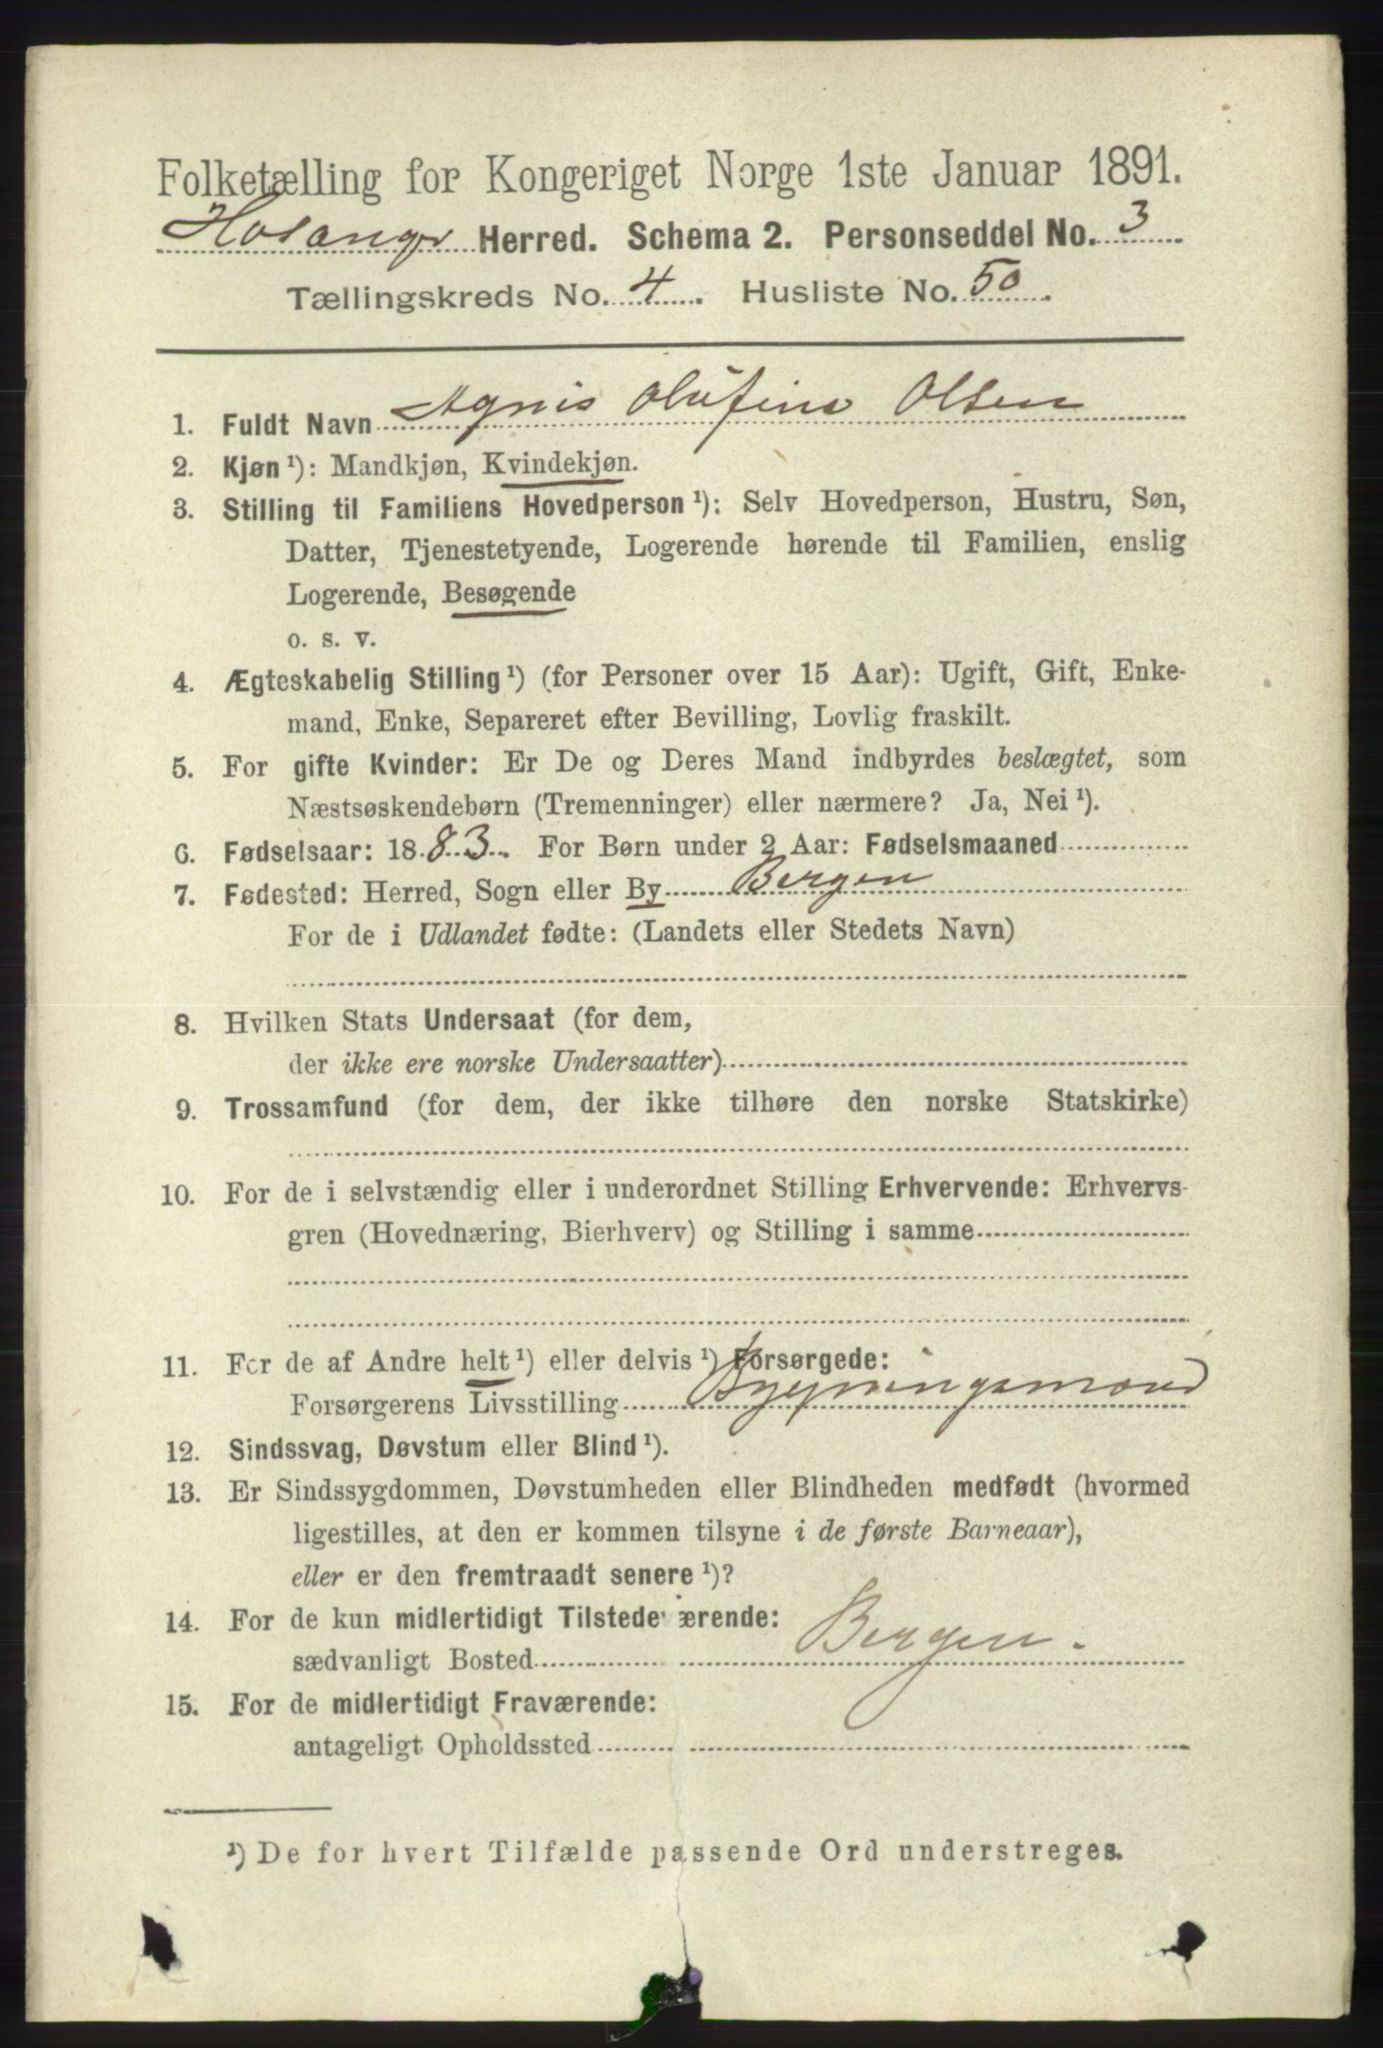 Folketælling for Kongeriget Norge 1ste Januar 1891.
Hosanger Herred. Schema 2. Personseddel No. 3
Tællingskreds No. 4. Husliste No. 50.
1. Fuldt Navn Agnis Olufine Olsen
2. Kjøn ¹): Mandkjøn, Kvindekjøn.
3. Stilling til Familiens Hovedperson ¹): Selv Hovedperson, Hustru, Søn,
Datter, Tjenestetyende, Logerende hørende til Familien, enslig
Logerende, Besøgende
o. s. v.
4. Ægteskabelig Stilling ¹) (for Personer over 15 Aar): Ugift, Gift, Enke-
mand, Enke, Separeret efter Bevilling, Lovlig fraskilt.
5. For gifte Kvinder: Er De og Deres Mand indbyrdes beslægtet, som
Næstsøskendebørn (Tremenninger) eller nærmere? Ja, Nei ¹).
6. Fødselsaar: 1883. For Børn under 2 Aar: Fødselsmaaned
7. Fødested: Herred, Sogn eller By Bergen
For de i Udlandet fødte: (Landets eller Stedets Navn)
8. Hvilken Stats Undersaat (for dem,
der ikke ere norske Undersaatter)
9. Trossamfund (for dem, der ikke tilhøre den norske Statskirke)
10. For de i selvstændig eller i underordnet Stilling Erhvervende: Erhvervs-
gren (Hovednæring, Bierhverv) og Stilling i samme
11. For de af Andre helt ¹) eller delvis ¹) Forsørgede:
Forsørgerens Livsstilling Bygningsmand
12. Sindssvag, Døvstum eller Blind ¹).
13. Er Sindssygdommen, Døvstumheden eller Blindheden medfødt (hvormed
ligestilles, at den er kommen tilsyne i de første Barneaar),
eller er den fremtraadt senere ¹)?
14. For de kun midlertidigt Tilstedeværende:
sædvanligt Bosted Bergen.
15. For de midlertidigt Fraværende:
antageligt Opholdssted
¹) De for hvert Tilfælde passende Ord understreges.